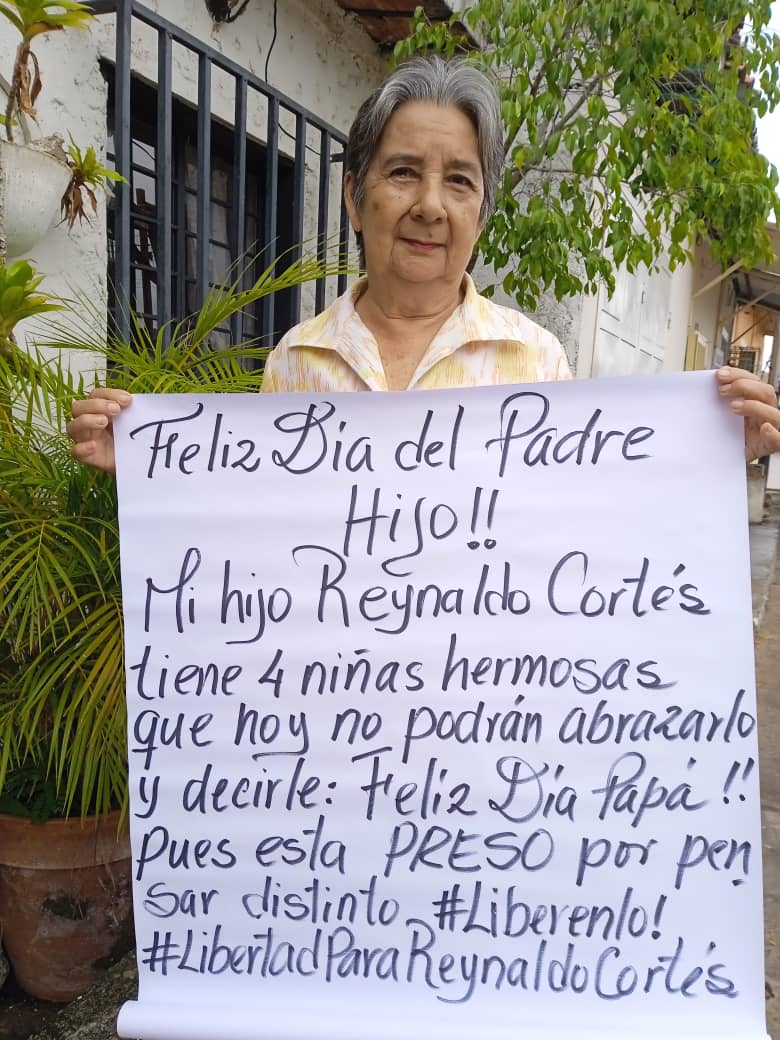 Feliz Día del Padre
Hijo!!
Mi hijo Reynaldo Cortés
tiene 4 niñas hermosas
que hoy no podrán abrazarlo
y decirle: Feliz Día Papá!!
Pues esta PRESO por pen
sar distinto. #Liberenlo!
#LibertadParaReynaldoCortés